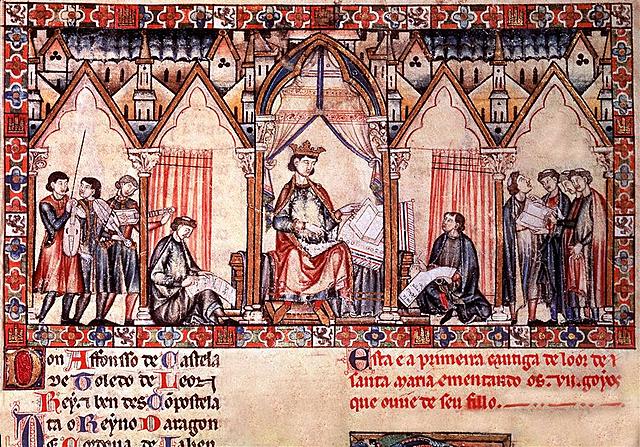 Don Affonsso de Castela
de Toledo de Leon
Rey e ben des Conpostela
ta o Reyno Daragon
De Cordova de Jahen
Esta e a primeira cantiga de loor de
santa maria ementando os .vii. goyos
que ouve de seu fillo.